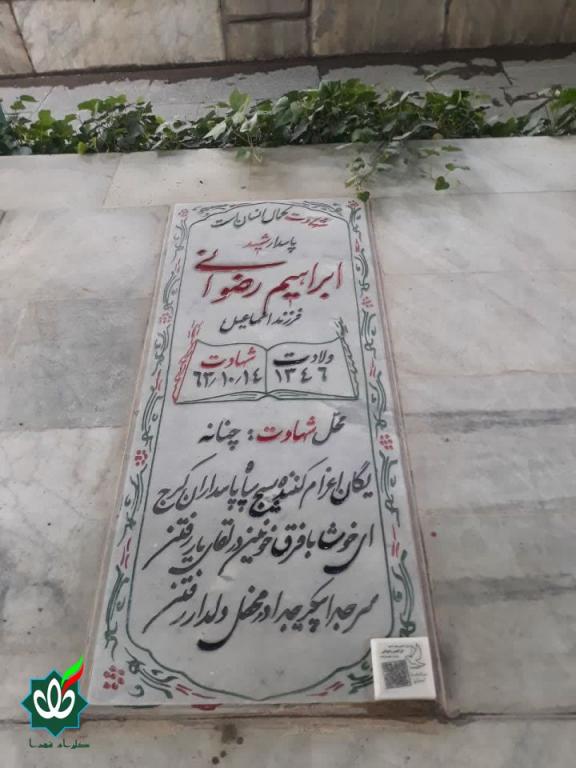 شهادت کمال انسان است
پاسدار شهید
ابراهیم رضوانی
فرزند اسماعیل
ولادت
۱۳۴۶
شهادت
۶۲٫۱۰٫۱۴
محل شهادت: چنانه
یگان اعزام کننده بسیج سپاه پاسداران کرج
ای خوشا با فرق خونین در لقا یار رفتن
سر جدا پیکر جدا در محفل دلدار رفتن
گلزار شهدا